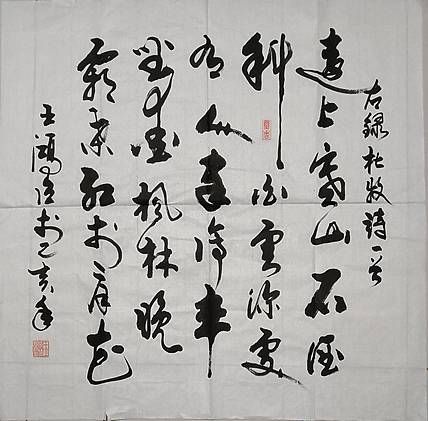 右錄杜牧詩一首
遠上寒山石徑
斜白雲深處
有人家停車
坐愛楓林晚
霜葉紅於二月花
王鴻 於 亥年